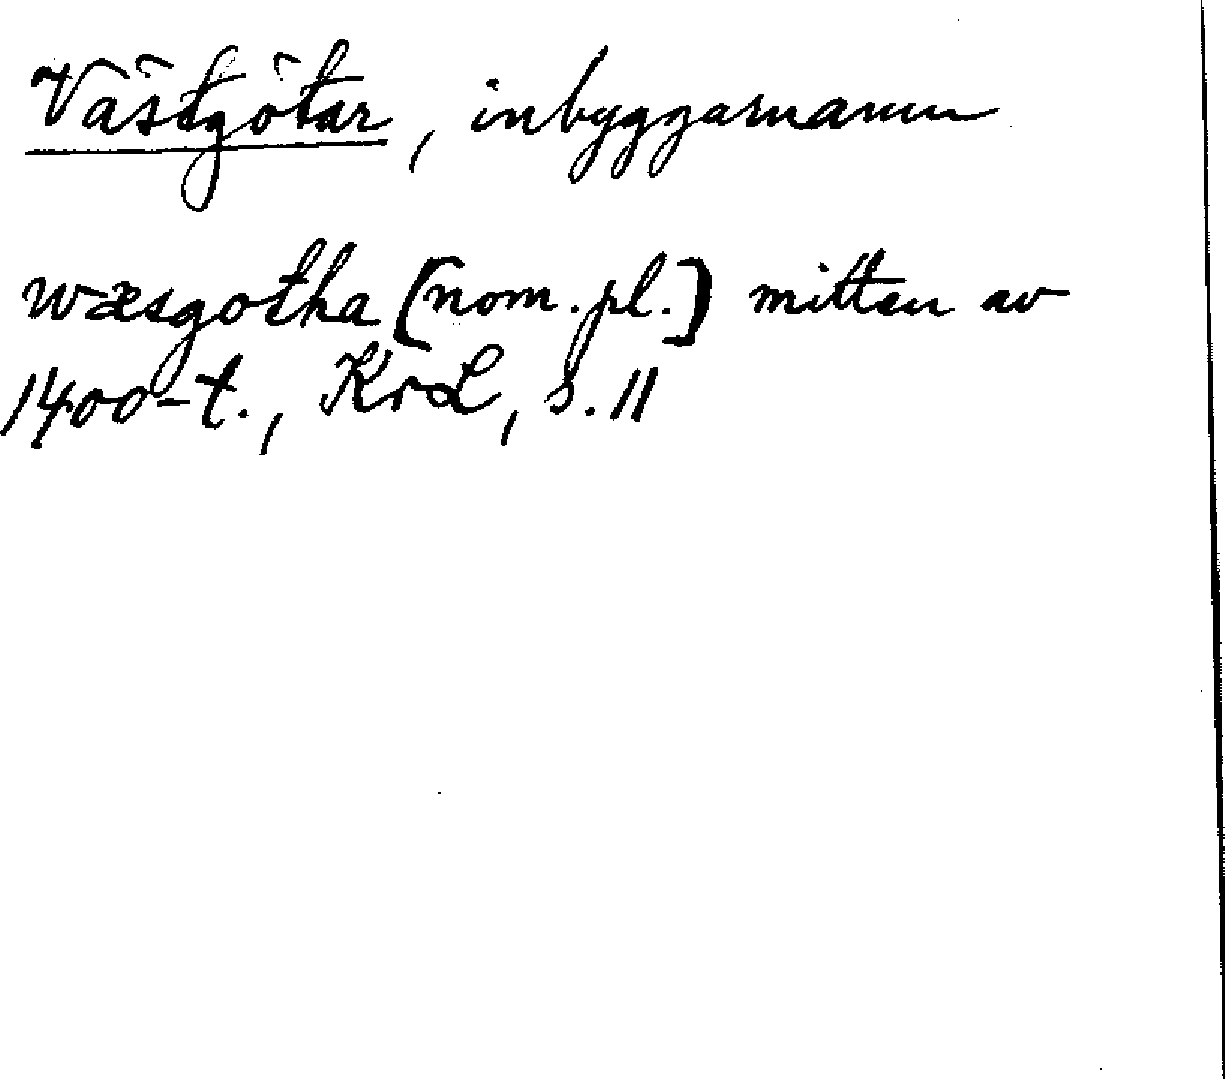 Västgötar, inbyggarnamn
wæsgotha [nom. pl.] mitten av
1400-t., KrL, s. 11